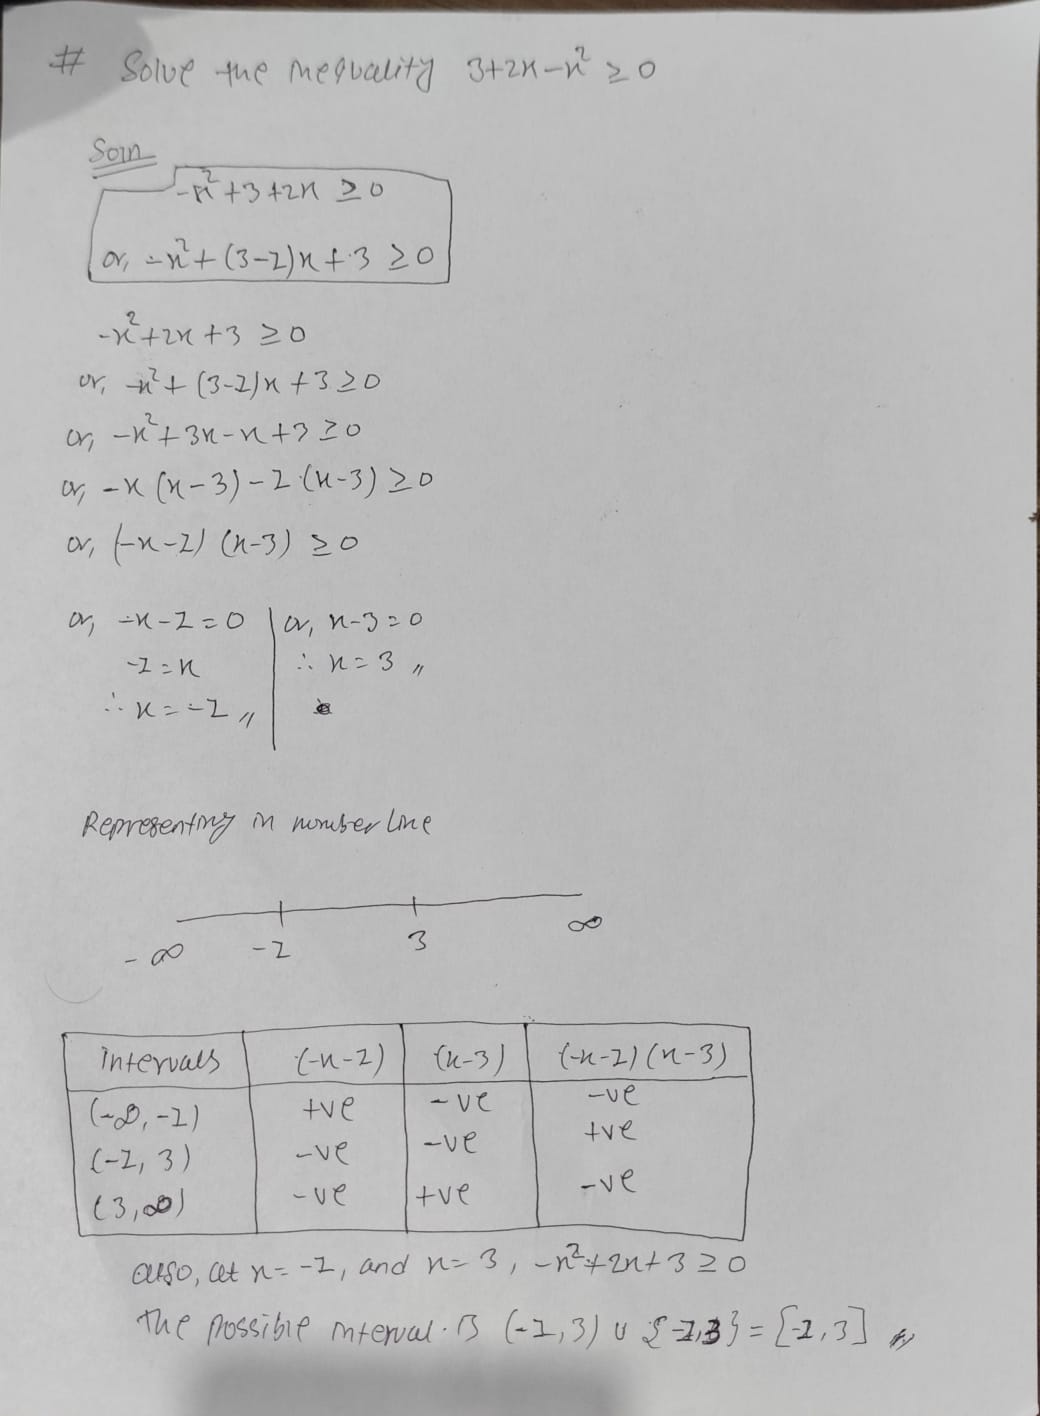 # Solve the inequality 3+2x-x² ≥ 0
Soln
-x²+3+2x ≥ 0
or, -x²+(3-1)x+3 ≥ 0
-x²+2x+3 ≥ 0
or, -x²+(3-1)x+3 ≥ 0
or, -x²+3x-x+3 ≥ 0
or, -x(x-3)-1(x-3) ≥ 0
or, (-x-1)(x-3) ≥ 0
or, -x-1=0 | or, x-3=0
-1=x ∴ x=3 〃
∴ x=-1 〃
Representing in number line
-∞ -1 3 ∞
Intervals (-x-1) (x-3) (-x-1)(x-3)
(-∞,-1) +ve -ve -ve
(-1,3) -ve -ve +ve
(3,∞) -ve +ve -ve
also, at x=-1, and x=3, -x²+2x+3 ≥ 0
The possible interval is (-1,3) ∪ {-1,3} = [-1,3] 〃